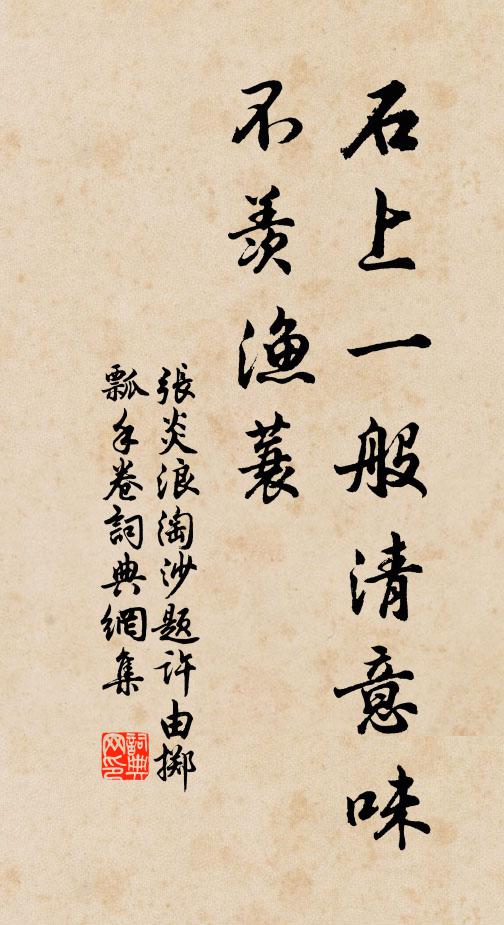 石上一般清意味
不羨漁蓑
張炎浪淘沙题許由擲
瓢手卷詞典網集
詞典
网印